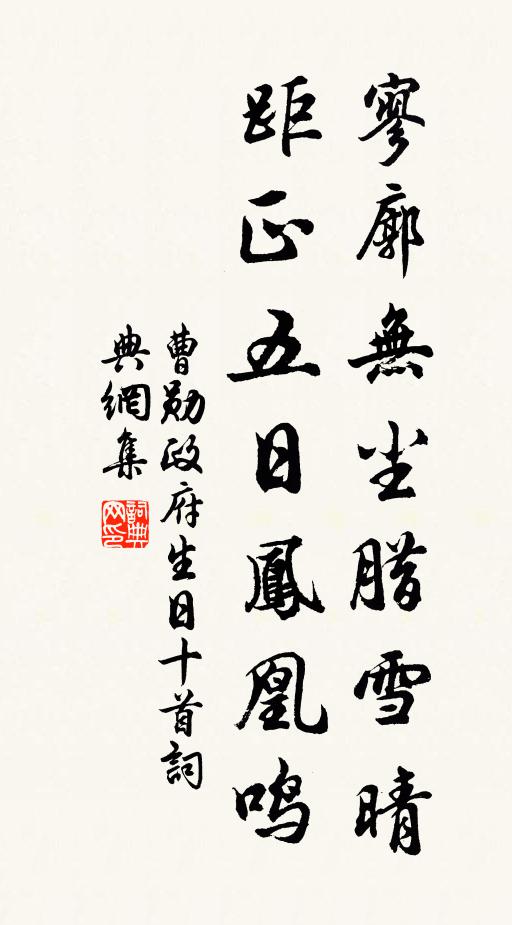 寥廓無尘腊雪晴
距正五日鳳凰鸣
曹勋政府生日十首詞
典網集
詞典
网印